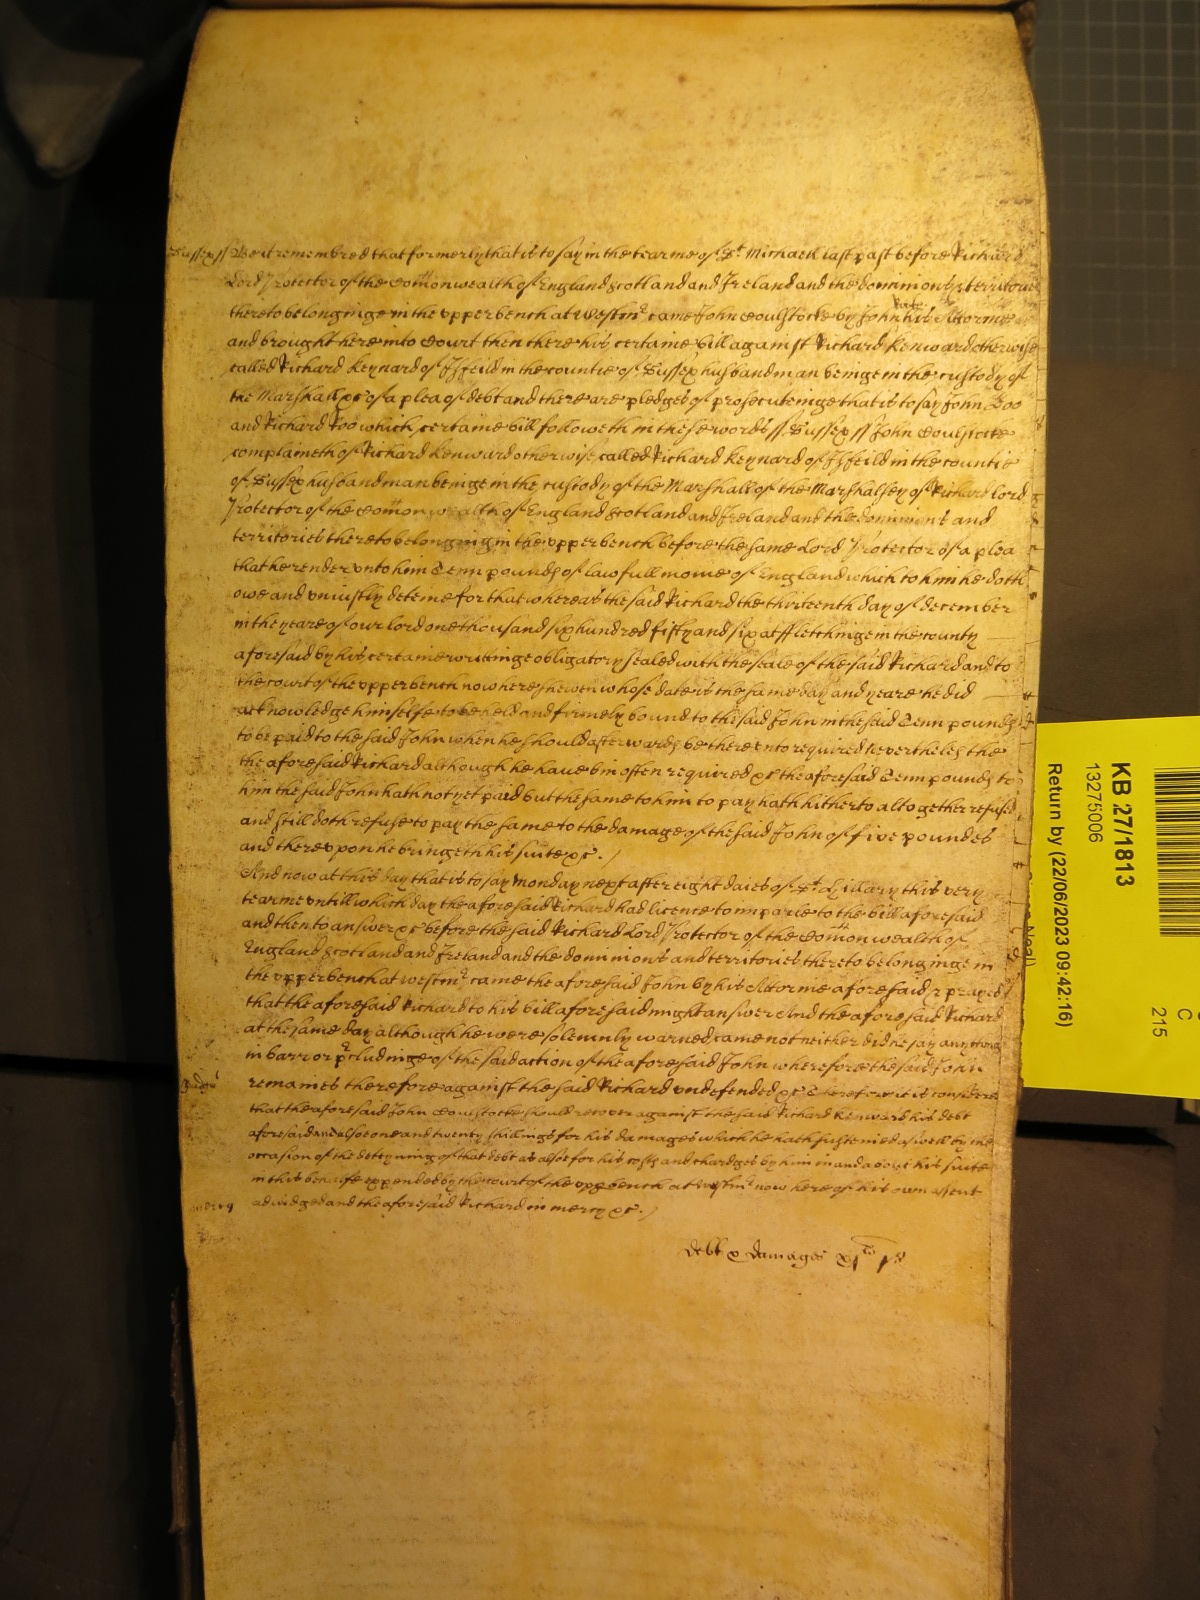 Sussex ss Be it remembred that formerly that is to say in the tearme of St Michaell last past before Richard
Lord Protector of the Comonwealth of England Scotland and Ireland and the dominions & territories
thereto belonginge in the upper bench at Westmr came John Coulstocke by John his Attorney
and brought here into Court then there his certaine bill against Richard Kenward otherwise
called Richard Keynard of Iffeild in the countie of Sussex husbandman beinge in the custody of
the Marshall &c of a plea of debt and there are pledges of prosecuteinge that is to say John Doo
and Richard Roo which certaine bill followeth in these words ss Sussex ss John Coulstocke
complaineth of Richard Kenward otherwise called Richard Keynard of Iffeild in the countie
of Sussex husbandman beinge in the custody of the Marshall of the Marshalsey of Richard lord
Protector of the Comonwealth of England Scotland and Ireland and the dominions and
territories thereto belonging in the upper bench before the same Lord Protector of a plea
that he render unto him Tenn pounds of lawfull monie of England which to him he doth
owe and uniustly deteine for that whereas the said Richard the thirteenth day of december
in the yeare of our lord one thousand six hundred fifty and six at Fletchinge in the county
aforesaid by his certaine writeinge obligatory sealed with the seale of the said Richard and to
the court of the upper bench now here shewen whose date is the same day and yeare he did
acknowledge himselfe to be held and firmely bound to the said John in the said Tenn pounds
to be paid to the said John when he should afterwards be thereunto required Neverthelesse the
the aforesaid Richard although he have bin often required &c the aforesaid Tenn pounds to
him the said John hath not yet paid but the same to him to pay hath hitherto altogether refused
and still doth refuse to pay the same to the damage of the said John of five poundes
and thereupon he bringeth his suite &c.
And now at this day that is to say Monday next after eight daies of St Hillary this very
tearme untill which day the aforesaid Richard had licence to imparle to the bill aforesaid
and then to answer &c before the said Richard Lord Protector of the Comonwealth of
England Scotland and Ireland and the dominions and territories thereto belonginge in
the upper bench at westmr came the aforesaid John by his Attornie aforesaid & prayed
that the aforesaid Richard to his bill aforesaid might answer And the aforesaid Richard
at the same day although he were solemnly warned came not neither did he say any thing
in barr or pcludinge of the said action of the aforesaid John wherefore the said John
Judgmt remaines therefore against the said Richard undefended &c Therefore it is considered
that the aforesaid John Coulstocke should recover against the said Richard Kenward his debt
aforesaid and alsoe one and twenty shillings for his damages which he hath susteined aswell by the
occasion of the deteyning of that debt as alsoe for his costs and chardges by him in and about his suite
in this behalfe expended by the court of the upp bench at Westmr now here of his own assent
mercy adiudged and the aforesaid Richard in mercy &c.
debt & damages xjli js
KB 27/1813
13275006
Return by (22/06/2023 09:42:16)
C
215
Neal)